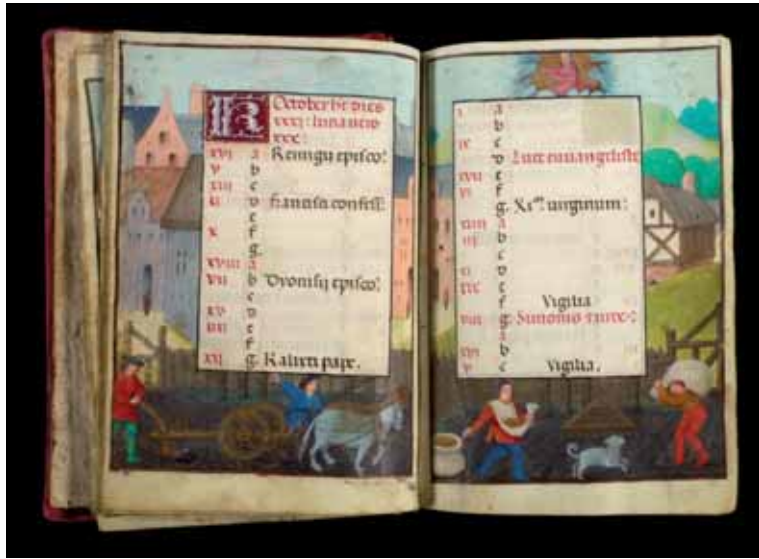 KL October hr dies
xxxj: luna vero
xxx:
xvi a Remigii episco:
v b
xiii c
ii d francisci confess:
e
x f
g
xviii a
vii b Dyonisii episco:
c
xv d
iiii e
f
xii g Kalixti pape.
i a
b
ix c
d Luce euuangeliste
xvii e
vi f
g Xim. uirginum:
xiiii a
iii b
c
xi d
xix e
f Vigilia
viii g Symonis & iude:
a
xvi b
v c Vigilia.